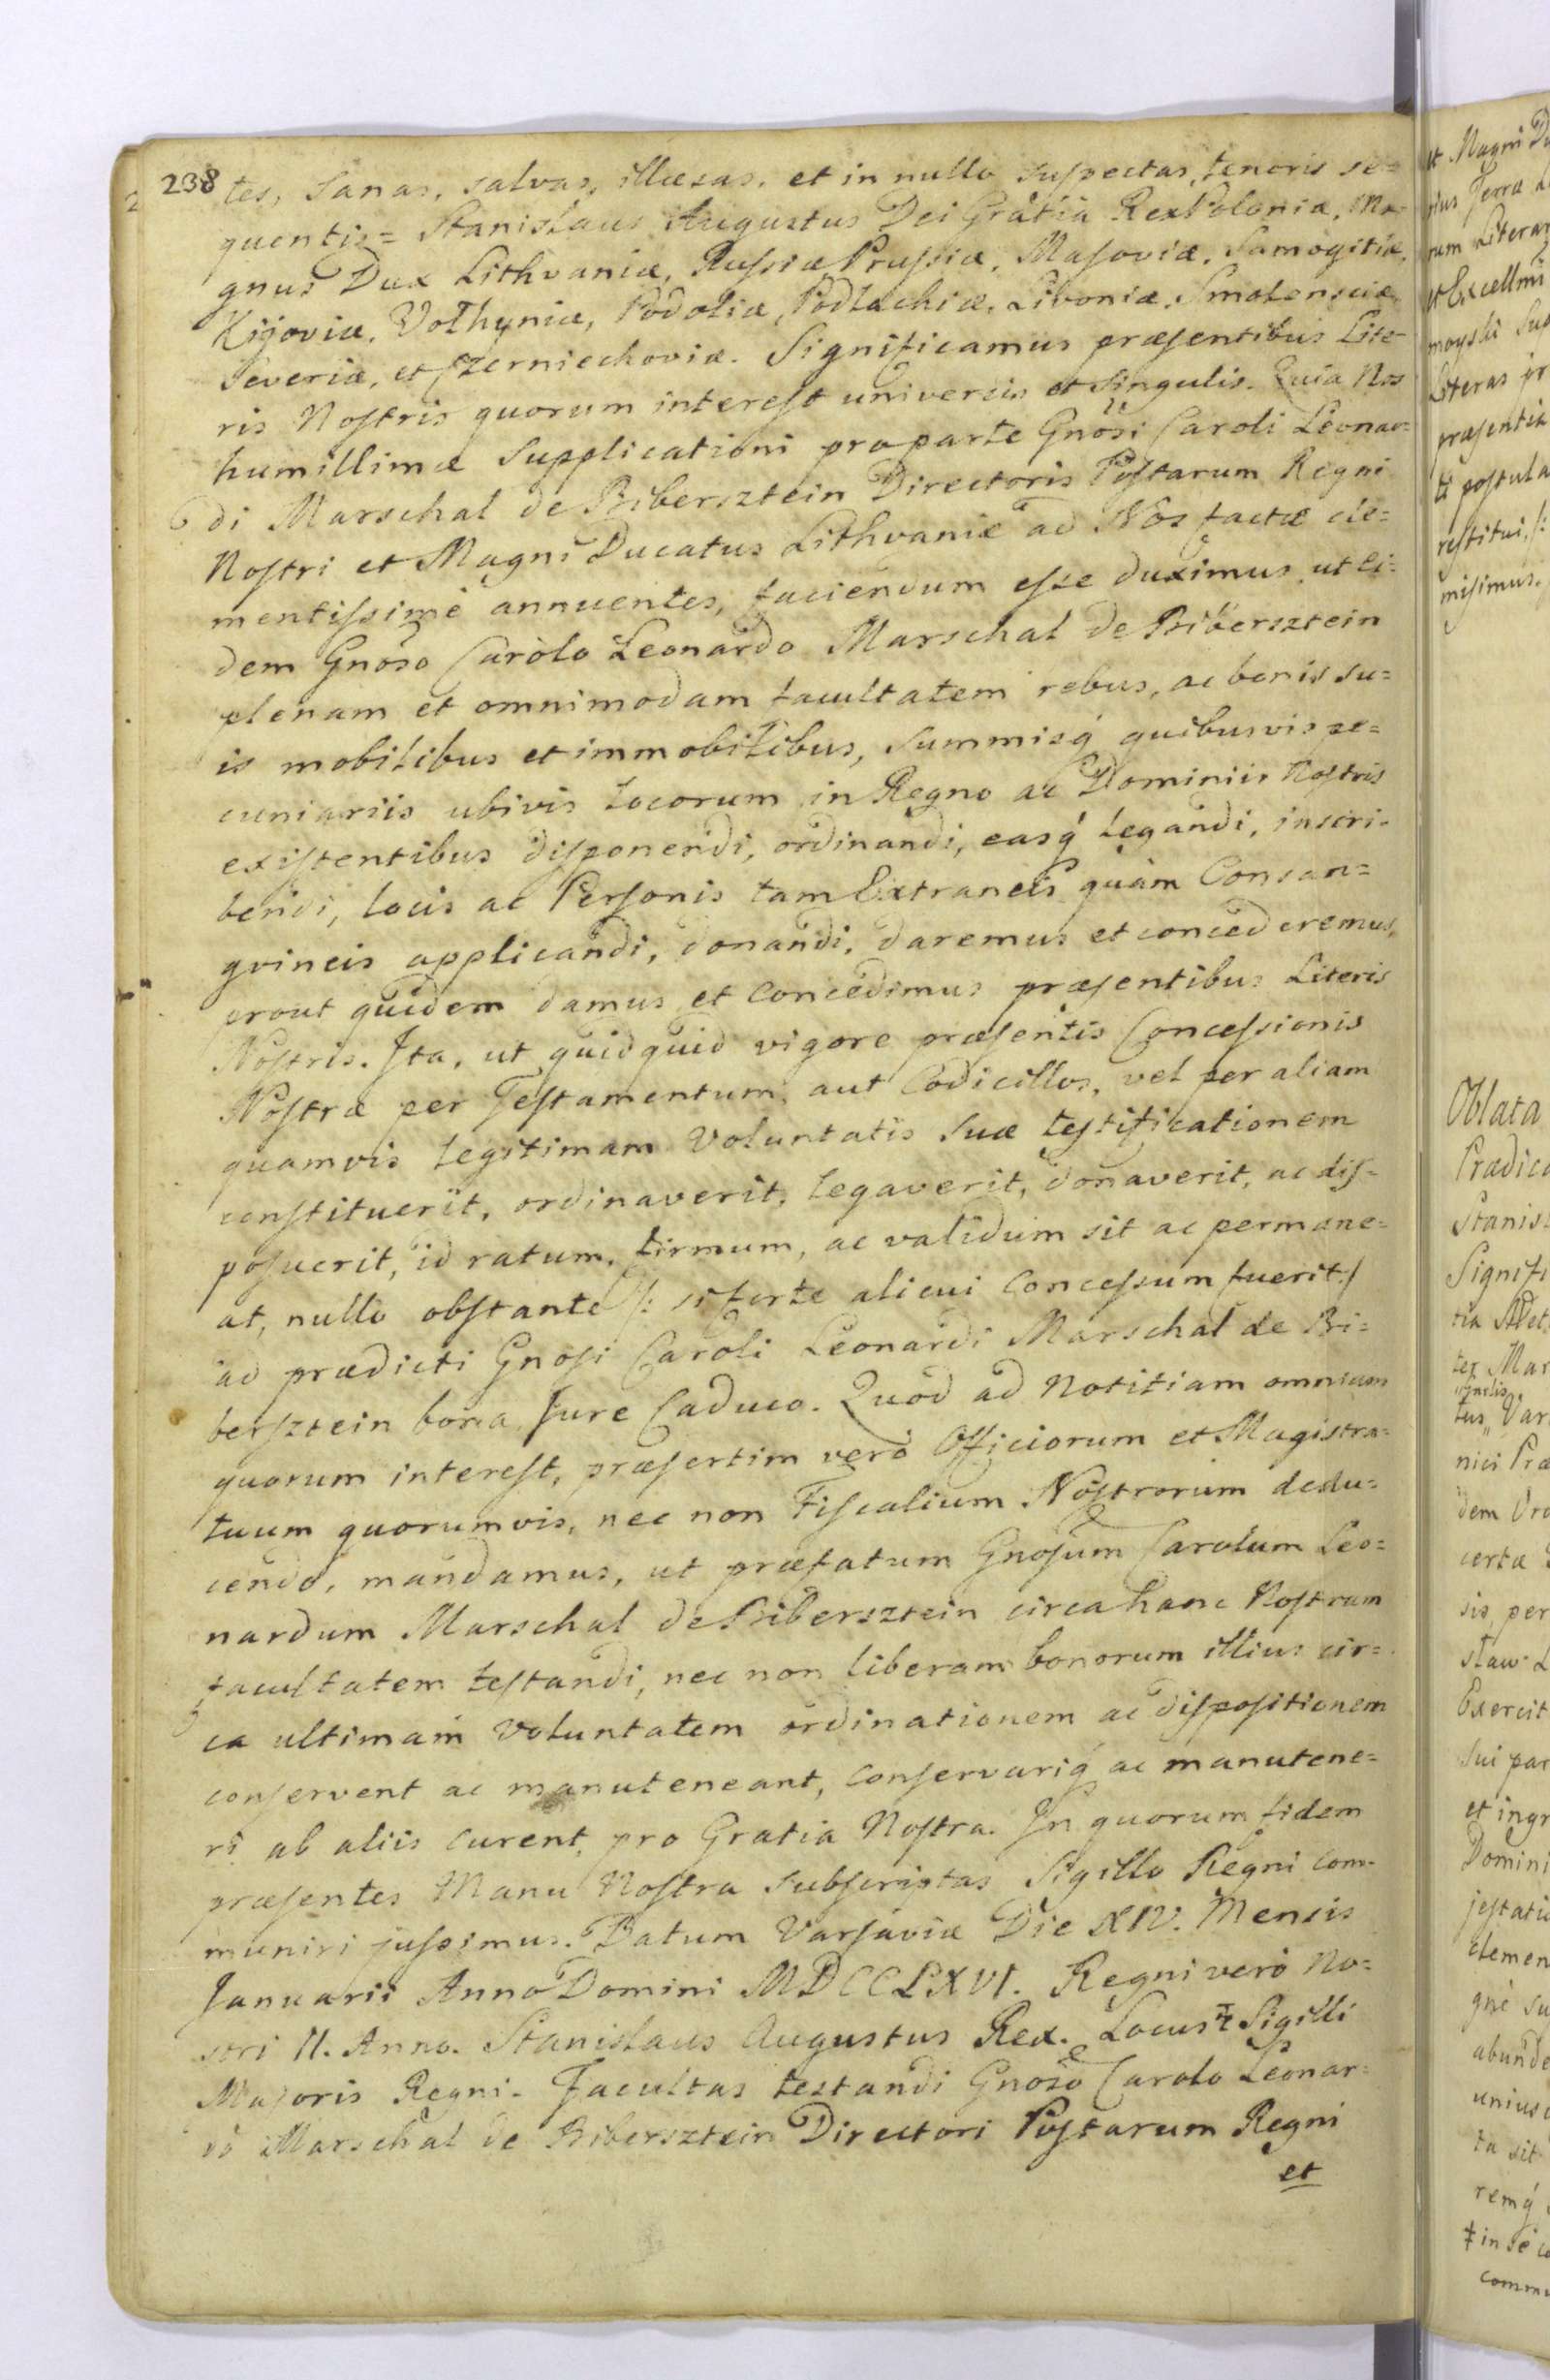 238
tes, sanas, salvas, illæsas, et in nullo suspectas, tenoris se=
quentis = Stanislaus Augustus Dei Gratia Rex Poloniæ, Ma=
gnus Dux Lithvaniæ, Russiæ, Prussiæ, Masoviæ, Samogitiæ,
Kijoviæ, Volhyniæ, Podoliæ, Podlachiæ, Livoniæ, Smolensciæ,
Severiæ, et Czerniechoviæ. Significamus præsentibus Lite=
ris Nostris quorum interest universis et singulis. Quia Nos
humillimæ Supplicationi pro parte Gnosi Caroli Leonar=
di Marschal de Bibersztein Directoris Postarum Regni
Nostri et Magni Ducatus Lithvaniæ ad Nos factæ cle=
mentissimè annuentes, faciendum esse duximus, ut ei=
dem Gnoso Carolo Leonardo Marschal de Bibersztein
plenam et omnimodam facultatem rebus, ac bonis su=
is mobilibus et immobilibus, summisq́ quibusvis pe=
cuniariis ubivis locorum in Regno ac Dominiis Nostris
existentibus disponendi, ordinandi, easq́ legandi, inscri=
bendi, locis ac Personis tam Extraneis quàm Consan=
gvineis applicandi, donandi, daremus et concederemus,
prout quidem damus et concedimus præsentibus Literis
Nostris. Ita, ut quidquid vigore præsentis Concessionis
Nostræ per Testamentum, aut Codicillos, vel per aliam
quamvis legitimam voluntatis suæ testificationem
constituerit, ordinaverit, legaverit, donaverit, ac dis=
posuerit, id ratum, firmum, ac validum sit ac permane=
at, nullo obstante /: si forte alicui concessum fuerit :/
ad prædicti Gnosi Caroli Leonardi Marschal de Bi=
bersztein bona Jure Caduco. Quod ad notitiam omnium
quorum interest, præsertim verò Officiorum et Magistra=
tuum quorumvis, nec non Fiscalium Nostrorum dedu=
cendo, mandamus, ut præfatum Gnosum Carolum Leo=
nardum Marschal de Bibersztein circa hanc Nostram
facultatem testandi, nec non liberam bonorum illius cir=
ca ultimam voluntatem ordinationem ac dispositionem
conservent ac manuteneant, conservariq́ ac manutene=
ri ab aliis curent, pro Gratia Nostra. In quorum fidem
præsentes Manu Nostra subscriptas Sigillo Regni com=
muniri jussimus. Datum Varsaviæ Die XIV. Mensis
Januarii Anno Domini MDCCLXVI. Regni verò No=
stri II. Anno. Stanislaus Augustus Rex. Locus ‡ Sigilli
Majoris Regni. Facultas testandi Gnoso Carolo Leonar=
do Marschal de Bibersztein Directori Postarum Regni
et
et Magni Du
rius Terræ
rum Literar
et Excellmi
moyski Su
Literas pr
præsentib
ti postula
restitui, /:
misimus.
Oblata
Prædica
Stanis=
Signifi
ter Mar
tus Var
nici Præ
dem Ord
certæ
sis, per
staw L
Exercit
sui par
et ingr
Domini
jestatis
clemen
gnè su
abunde
unius
ta sit
remq́
‡ in se co
commu